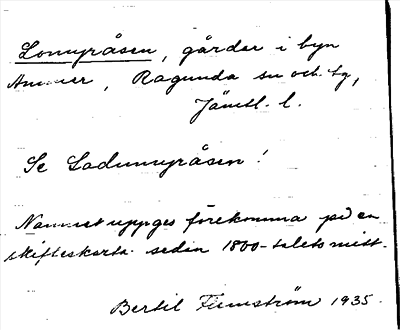 Lommyråsen, gårdar i byn
Ammer, Ragunda sn och tg,
Jämtl. l.
Se Ladmmyråsen!
Namnet uppges förekomma på en
skifteskarta sedan 1800-talets mitt.
Bertil Flemström 1935.